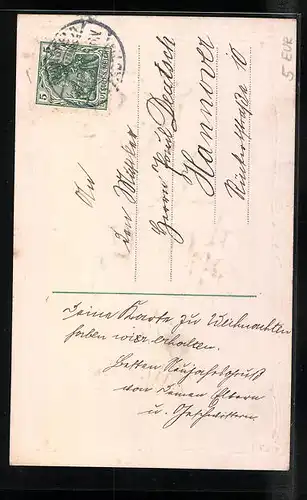 5
5 EUR
An
den Musiker
Herrn Paul Deutsch
Hannover
Deine Karte zu Weihnachten
haben wir erhalten.
Besten Neujahrsgruß
von Deinen Eltern
u. Geschwistern